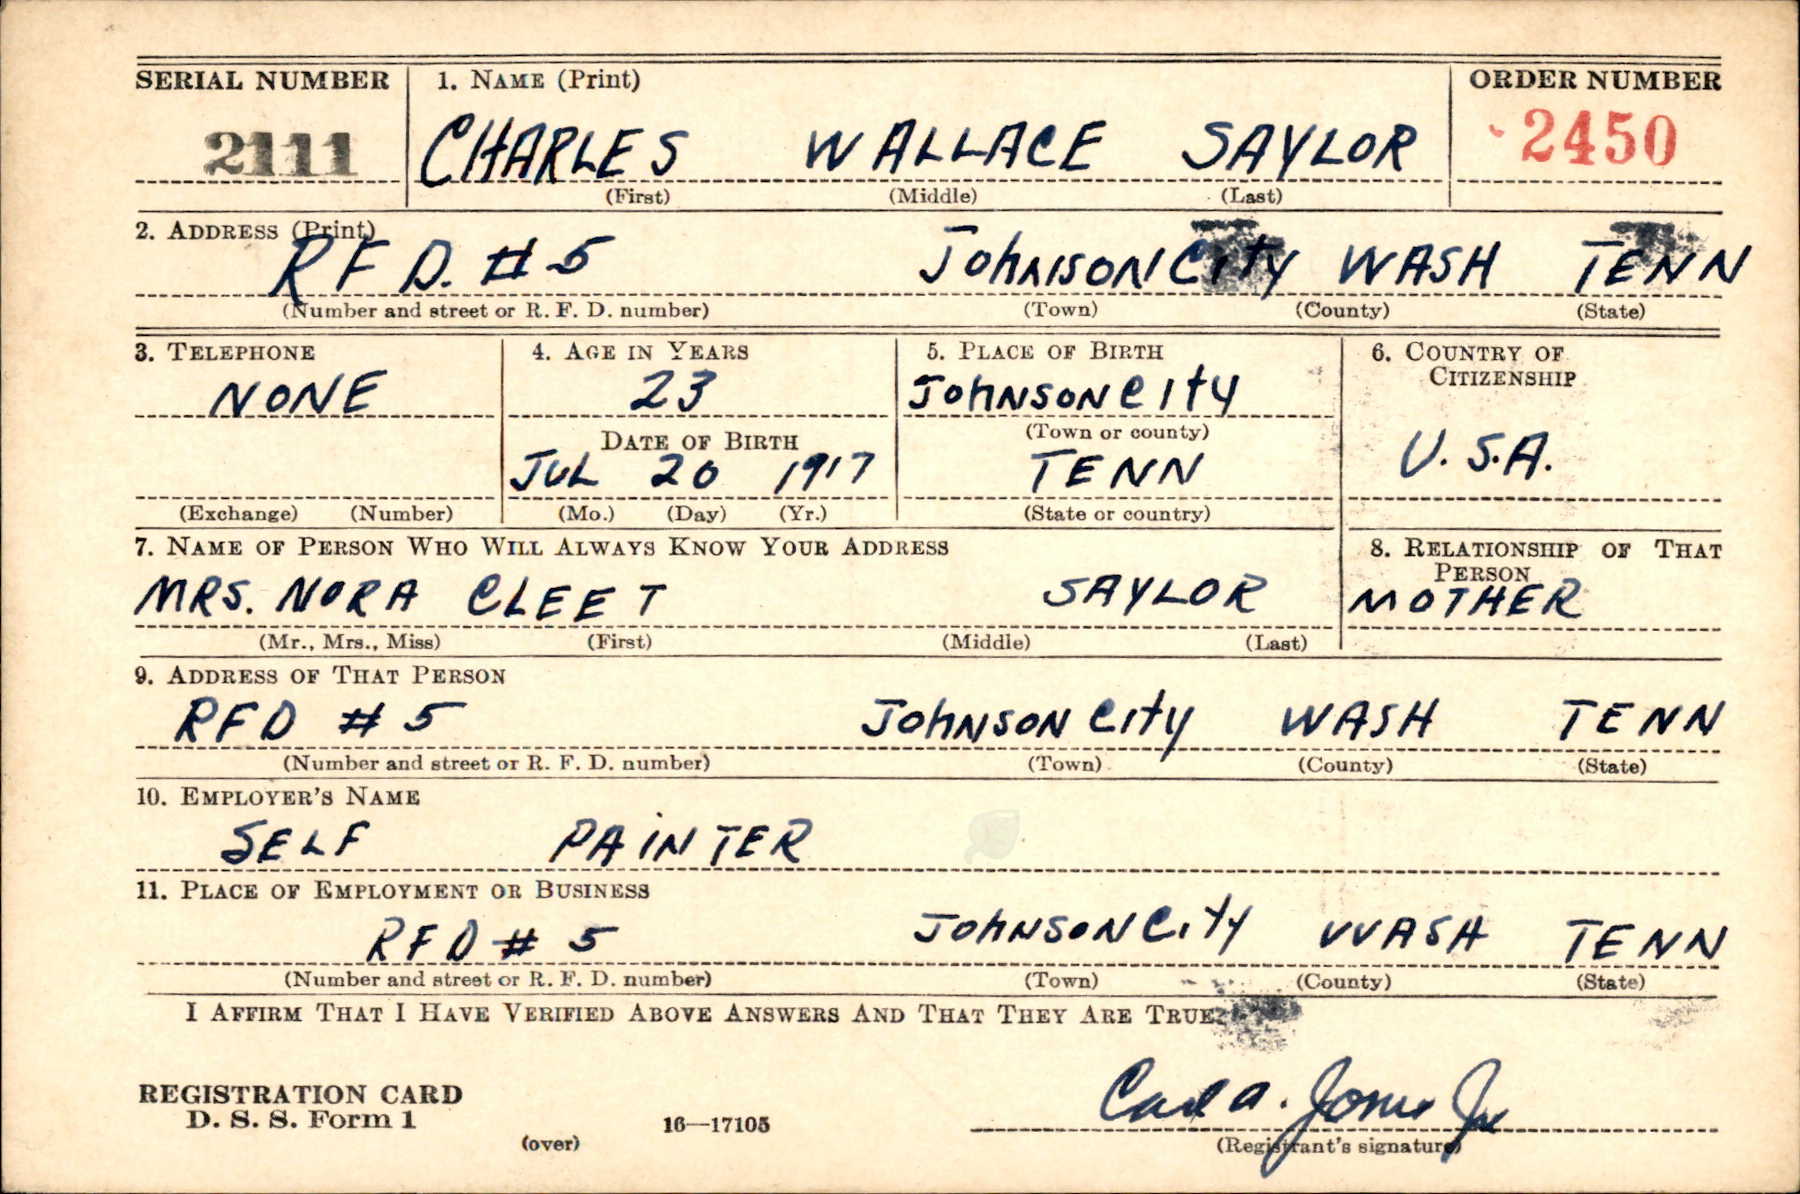 SERIAL NUMBER 1. NAME (Print) ORDER NUMBER
2111 CHARLES WALLACE SAYLOR 2450
(First) (Middle) (Last)
2. ADDRESS (Print)
R F D. # 5 JOhNSON CitY WASH TENN
(Number and street or R. F. D. number) (Town) (County) (State)
3. TELEPHONE 4. AGE IN YEARS 5. PLACE OF BIRTH 6. COUNTRY OF CITIZENSHIP
NONE 23 JOHNSON CITY
DATE OF BIRTH (Town or county)
JUL 20 1917 TENN U.S.A.
(Exchange) (Number) (Mo.) (Day) (Yr.) (State or country)
7. NAME OF PERSON WHO WILL ALWAYS KNOW YOUR ADDRESS 8. RELATIONSHIP OF THAT PERSON
MRS. NORA CLEET SAYLOR MOTHER
(Mr., Mrs., Miss) (First) (Middle) (Last)
9. ADDRESS OF THAT PERSON
RFD # 5 JOHNSON CITY WASH TENN
(Number and street or R. F. D. number) (Town) (County) (State)
10. EMPLOYER'S NAME
SELF PAINTER
11. PLACE OF EMPLOYMENT OR BUSINESS
RFD # 5 JOHNSON CITY WASH TENN
(Number and street or R. F. D. number) (Town) (County) (State)
I AFFIRM THAT I HAVE VERIFIED ABOVE ANSWERS AND THAT THEY ARE TRUE.
REGISTRATION CARD
D. S. S. Form 1 16—17105 Carl A. Jones Jr
(over) (Registrant's signature)